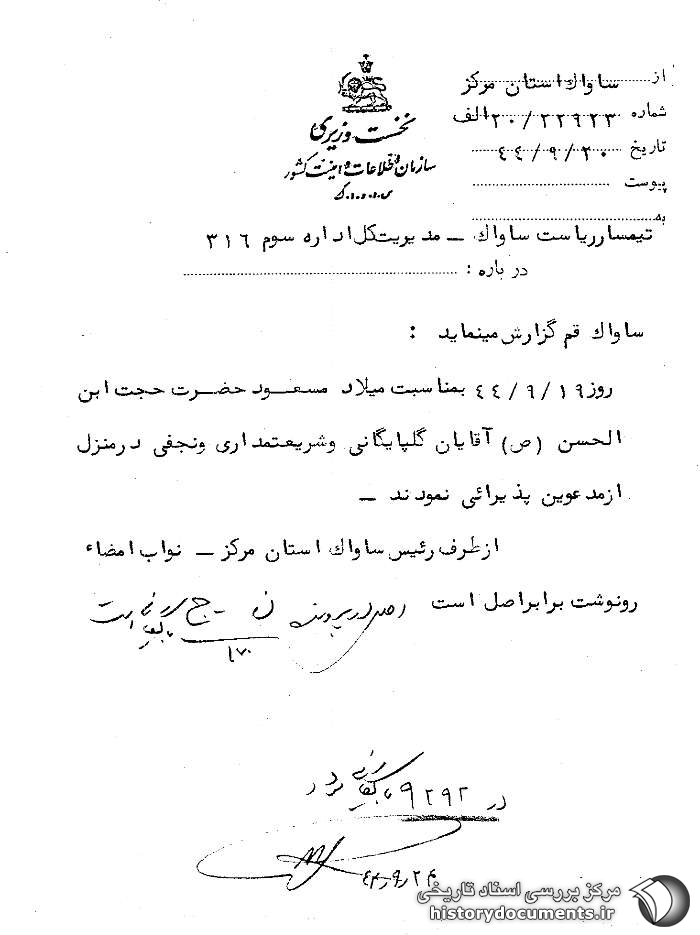 از ساواك استان مركز
شماره ۲۰/۲۲۹۲۳ الف
تاریخ ۴۴/۹/۲۰
پیوست
به
نخست وزیری
سازمان اطلاعات و امنیت کشور
س.ا.و.ا.ك
تیمسار ریاست ساواك – مدیریت کل اداره سوم ۳۱۶
در باره :
ساواك قم گزارش مینماید :
روز ۴۴/۹/۱۹ بمناسبت میلاد مسعود حضرت حجت ابن
الحسن (ص) آقایان گلپایگانی وشریعتمداری ونجفی درمنزل
ازمدعوین پذیرائی نمودند –
ازطرف رئیس ساواك استان مركز – نواب امضاء
رونوشت برابراصل است
اصل در پرونده
است
۱۷۰
در ۹۲۹۲
۴۴/۹/۲۴
مرکز بررسی اسناد تاریخی
historydocuments.ir